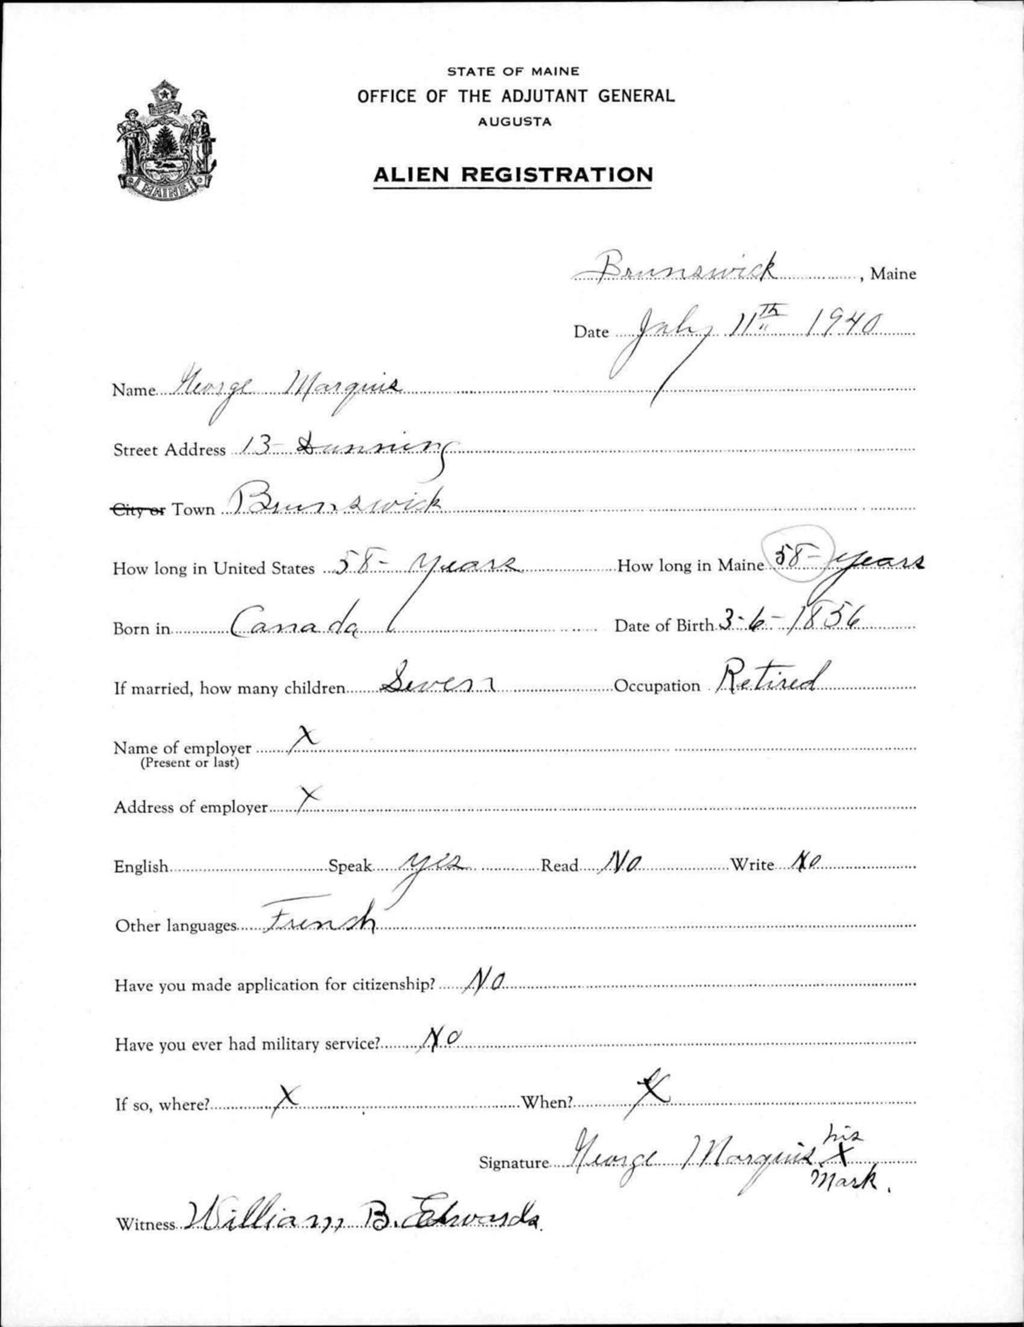 STATE OF MAINE
OFFICE OF THE ADJUTANT GENERAL
AUGUSTA
ALIEN REGISTRATION
MAINE
Brunswick, Maine
Date July 11th 1940
Name George Marquis
Street Address 13 Dunning
City or Town Brunswick
How long in United States 58- Years How long in Maine 58- years
Born in Canada Date of Birth 3-6-1856
If married, how many children Seven Occupation Retired
Name of employer X
(Present or last)
Address of employer X
English Speak yes Read No Write No
Other languages French
Have you made application for citizenship? No
Have you ever had military service? No
If so, where? X When? X
his
Signature George Marquis X
Mark.
Witness William B. Edwards